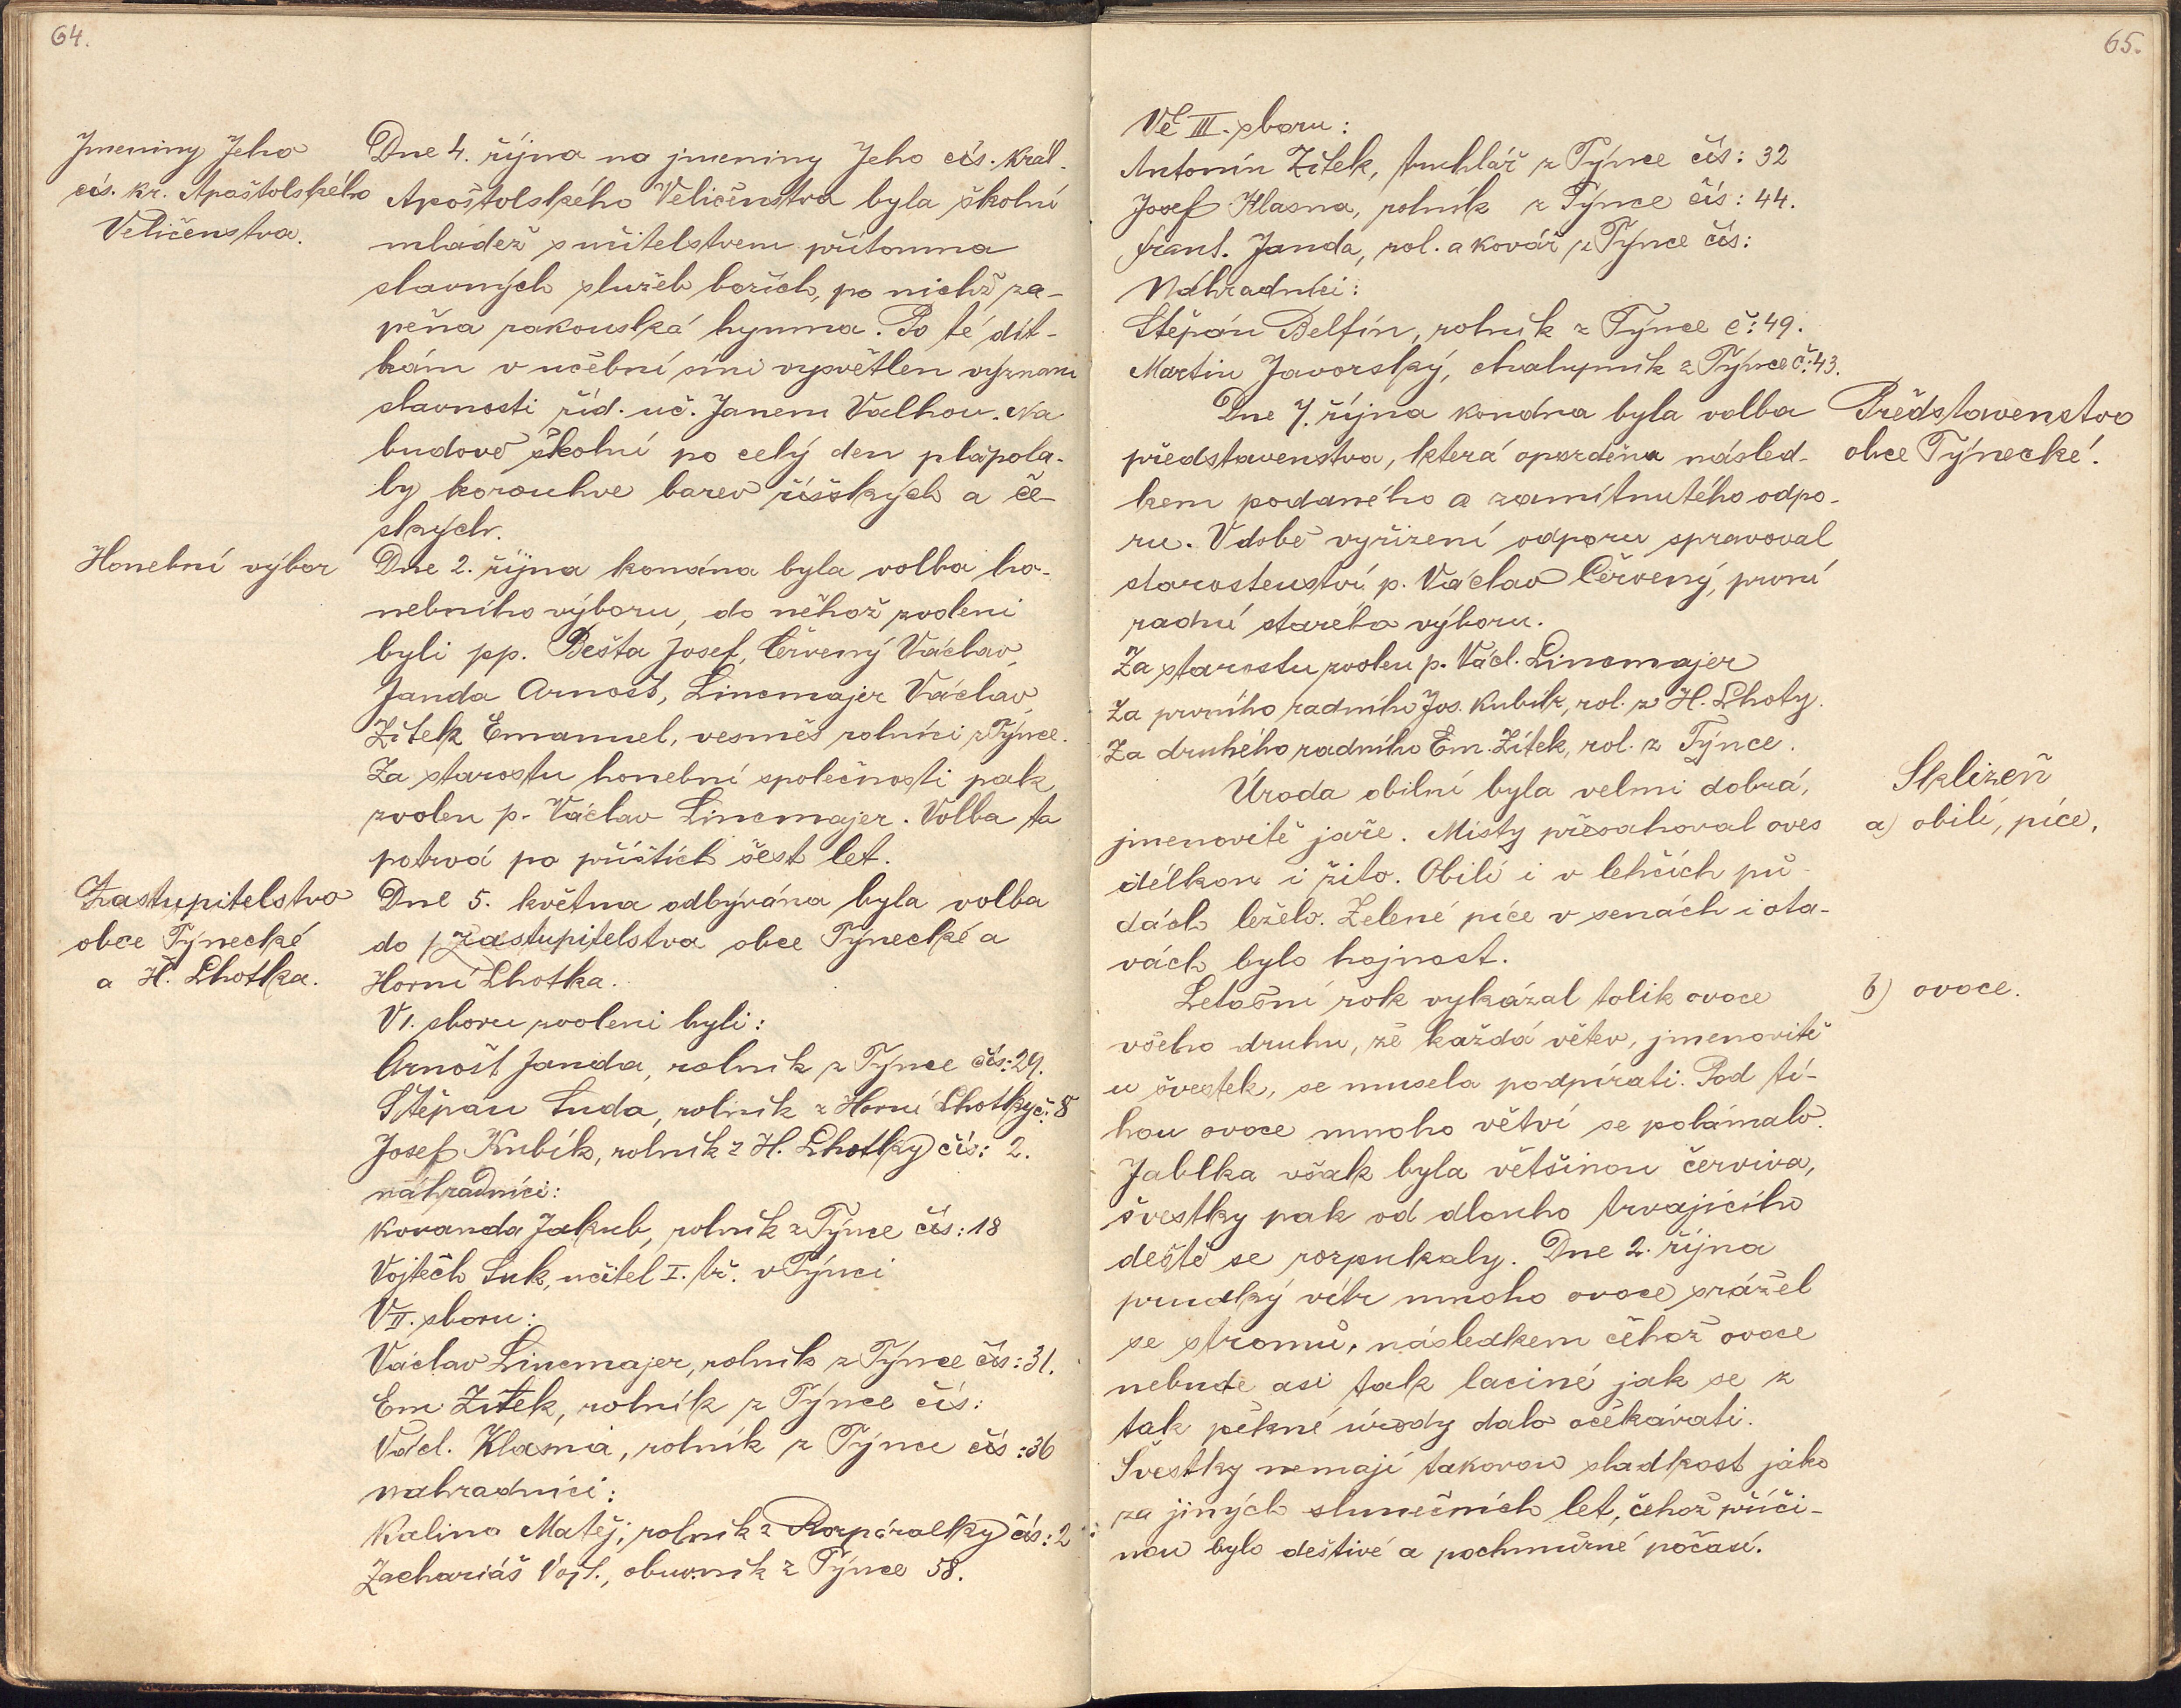 64.
Jmeniny Jeho
cís. kr. Apaštolského
Veličenstva.
Dne 4. října na jmeniny Jeho cís. král.
Apoštolského Veličenstva byla školní
mládež s učitelstvem přítomna
slavných služeb božích, po nichž za-
pěna rakouská hymna. Po té dít-
kám v učební síni vysvětlen význam
slavnosti říd. uč. Janem Valhou. Na
budově školní po celý den plápola-
ly korouhve barev říšských a če-
ských.
Honební výbor
Dne 2. října konána byla volba ho-
nebního výboru, do něhož zvoleni
byli pp. Bešta Josef, Červený Václav,
Janda Arnošt, Lincmajer Václav,
Zítek Emanuel, vesměs rolníci z Týnce.
Za starostu honební společnosti pak
zvolen p. Václav Lincmajer. Volba ta
potrvá po příštích šest let.
Zastupitelstvo
obce Týnecké
a H. Lhotka.
Dne 5. května odbývána byla volba
do zastupitelstva obce Týnecké a
Horní Lhotka.
V I. sboru zvoleni byli:
Arnošt Janda, rolník z Týnce čís: 29.
Štěpán Suda, rolník z Horní Lhotky č: 8
Josef Kubík, rolník z H. Lhotky čís: 2.
náhradníci:
Kovanda Jakub, rolník z Týnce čís: 18
Vojtěch Suk, učitel I. tř. v Týnci
V II. sboru:
Václav Lincmajer, rolník z Týnce čís: 31.
Em. Zítek, rolník z Týnce čís:
Václ. Hlasna, rolník z Týnce čís: 36
nahradníci:
Kalina Matěj, rolník z Rozpáralky čís: 2
Zachariáš Vojt., obuvník z Týnce 58.
65.
Ve III. sboru:
Antonín Zítek, truhlář z Týnce čís: 32
Josef Hlasna, rolník z Týnce čís: 44.
Frant. Janda, rol. a kovář z Týnce čís:
Náhradníci:
Štěpán Belfín, rolník z Týnce č: 49.
Martin Javorský, chalupník z Týnce č: 43.
Představenstvo
obce Týnecké.
Dne 7. října kondna byla volba
představenstva, která opozděna násled-
kem podaného a zamítnutého odpo-
ru. V době vyřízení odporu spravoval
starostenství p. Václav Červený, první
radní starého výboru.
Za starostu zvolen p. Václ. Lincmajer
Za prvního radního Jos. Kubík, rol. z H. Lhoty.
Za druhého radního Em. Zítek, rol. z Týnce.
Sklizeň
a) obilí, píce,
Úroda obilní byla velmi dobrá,
jmenovitě jaře. Místy přesahoval oves
délkou i žito. Obilí i v lehčích pů-
dách leželo. Zelené píce v senách i ota-
vách bylo hojnost.
b) ovoce.
Letošní rok vykázal tolik ovoce
všeho druhu, že každá větev, jmenovitě
u švestek, se musela podpírati. Pod tí-
hou ovoce mnoho větví se polámalo.
Jablka však byla většinou červiva,
švestky pak od dlouho trvajícího
deště se rozpukaly. Dne 2. října
prudký vítr mnoho ovoce srážel
se stromů, následkem čehož ovoce
nebude asi tak laciné jak se z
tak pěkné úrody dalo očekávati.
Švestky nemají takovou sladkost jako
za jiných slunečních let, čehož příči-
nou bylo deštivé a pochmúrné počasí.